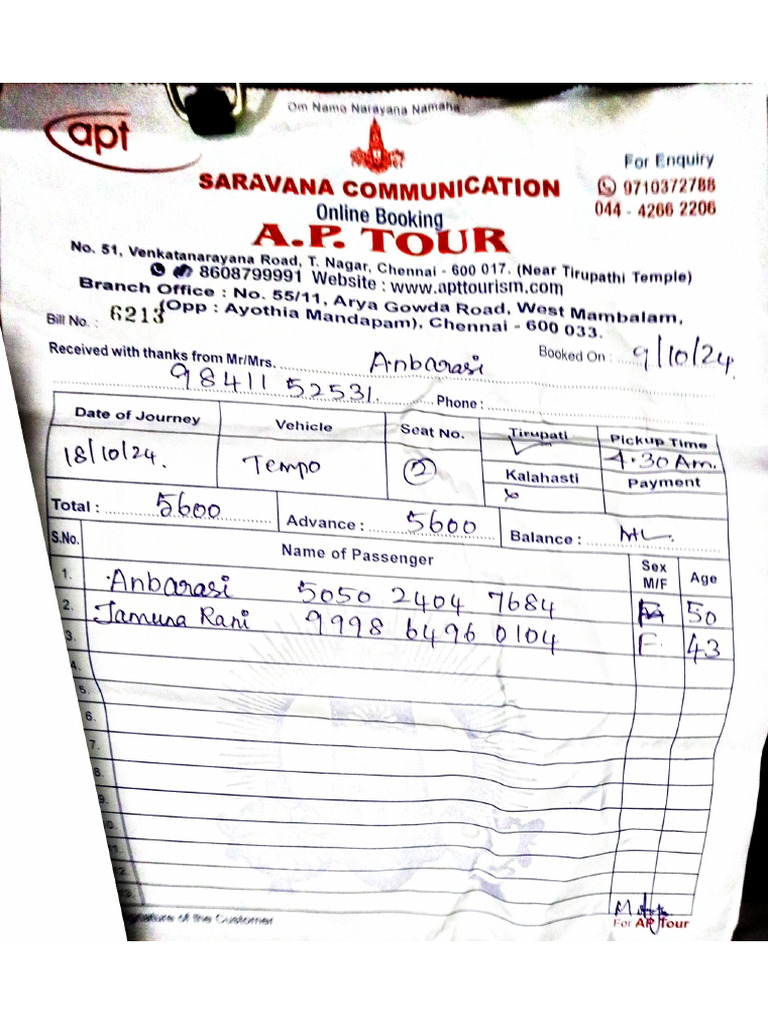 Om Namo Narayana Namaha
apt
For Enquiry
SARAVANA COMMUNICATION
9710372788
Online Booking
044 - 4266 2206
A.P. TOUR
No. 51, Venkatanarayana Road, T. Nagar, Chennai - 600 017. (Near Tirupathi Temple)
8608799991 Website : www.apttourism.com
Branch Office : No. 55/11, Arya Gowda Road, West Mambalam,
(Opp : Ayothia Mandapam), Chennai - 600 033.
Bill No. : 6213
Received with thanks from Mr/Mrs. Anbarasi Booked On : 9/10/24.
98411 52531. Phone :
Date of Journey Vehicle Seat No. Tirupati ✓ Pickup Time
18/10/24. Tempo 2 4.30 Am.
Kalahasti x Payment
Total : 5600 Advance : 5600 Balance : NIL
S.No. Name of Passenger Sex M/F Age
1. Anbarasi 5050 2404 7684 F 50
2. Jamuna Rani 9998 6496 0104 F. 43
3.
4.
5.
6.
7.
8.
9.
Signature of the Customer
For AP Tour